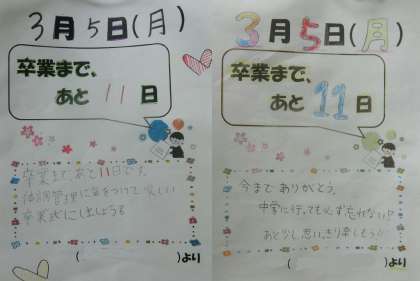 3月5日(月)
卒業まで、
あと 11 日
卒業まで、あと11日です。
体調管理に気をつけて楽しい
卒業式にしましょう
( )より
3月5日(月)
卒業まで、
あと 11 日
今まで ありがとう。
中学に行っても必ず忘れない?
あと少し思いっきり楽しもう!!
( )より